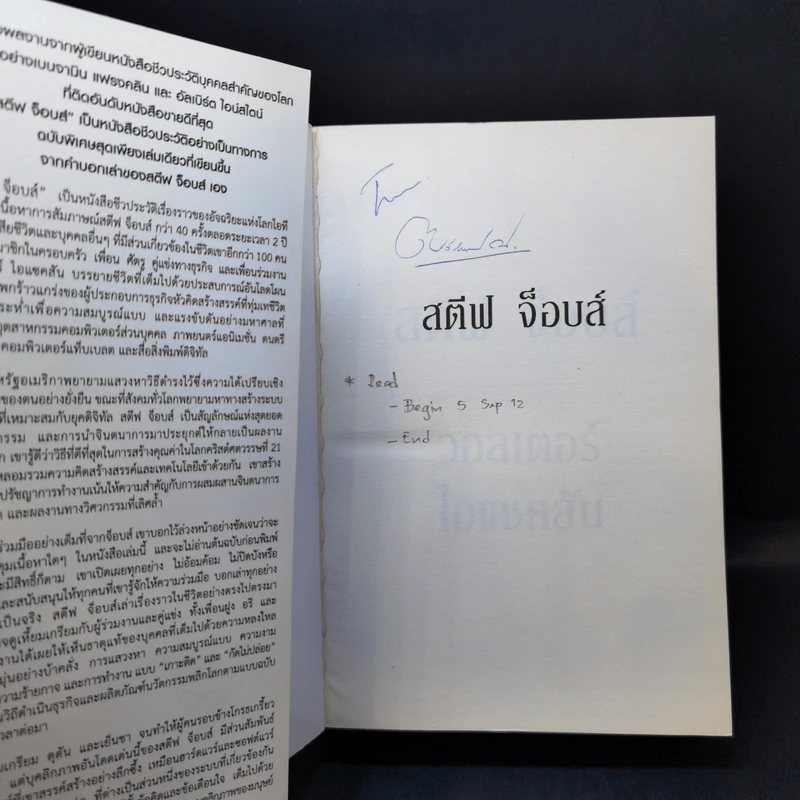 งผลงานจากผู้เขียนหนังสือชีวประวัติบุคคลสำคัญของโลก
อย่างเบนจามิน แฟรงคลิน และ อัลเบิร์ต ไอน์สไตน์
ที่ติดอันดับหนังสือขายดีที่สุด
สตีฟ จ็อบส์” เป็นหนังสือชีวประวัติอย่างเป็นทางการ
ฉบับพิเศษสุดเพียงเล่มเดียวที่เขียนขึ้น
จากคำบอกเล่าของสตีฟ จ็อบส์ เอง
จ็อบส์” เป็นหนังสือชีวประวัติเรื่องราวของอัจฉริยะแห่งโลกไอที
นื้อหาการสัมภาษณ์สตีฟ จ็อบส์ กว่า 40 ครั้งตลอดระยะเวลา 2 ปี
สียชีวิตและบุคคลอื่นๆ ที่มีส่วนเกี่ยวข้องในชีวิตเขาอีกกว่า 100 คน
มาชิกในครอบครัว เพื่อน ศัตรู คู่แข่งทางธุรกิจ และเพื่อนร่วมงาน
์ ไอแซคสัน บรรยายชีวิตที่เต็มไปด้วยประสบการณ์อันโลดโผน
าพกร้าวแกร่งของผู้ประกอบการธุรกิจหัวคิดสร้างสรรค์ที่ทุ่มเทชีวิต
ระห่ำเพื่อความสมบูรณ์แบบ และแรงขับดันอย่างมหาศาลที่
อุตสาหกรรมคอมพิวเตอร์ส่วนบุคคล ภาพยนตร์แอนิเมชั่น ดนตรี
คอมพิวเตอร์แท็บเบลต และสื่อสิ่งพิมพ์ดิจิทัล
หรัฐอเมริกาพยายามแสวงหาวิธีดำรงไว้ซึ่งความได้เปรียบเชิง
ของตนอย่างยั่งยืน ขณะที่สังคมทั่วโลกพยายามหาทางสร้างระบบ
ที่เหมาะสมกับยุคดิจิทัล สตีฟ จ็อบส์ เป็นสัญลักษณ์แห่งสุดยอด
กรรม และการนำจินตนาการมาประยุกต์ให้กลายเป็นผลงาน
ก เขารู้ดีว่าวิธีที่ดีที่สุดในการสร้างคุณค่าในโลกคริสต์ศตวรรษที่ 21
หลอมรวมความคิดสร้างสรรค์และเทคโนโลยีเข้าด้วยกัน เขาสร้าง
ปรัชญาการทำงานเน้นให้ความสำคัญกับการผสมผสานจินตนาการ
และผลงานทางวิศวกรรมที่เลิศล้ำ
ร่วมมืออย่างเต็มที่จากจ็อบส์ เขาบอกไว้ล่วงหน้าอย่างชัดเจนว่าจะ
คุมเนื้อหาใดๆ ในหนังสือเล่มนี้ และจะไม่อ่านต้นฉบับก่อนพิมพ์
ะมีสิทธิ์ก็ตาม เขาเปิดเผยทุกอย่าง ไม่อ้อมค้อม ไม่ปิดบังหรือ
และสนับสนุนให้ทุกคนที่เขารู้จักให้ความร่วมมือ บอกเล่าทุกอย่าง
เป็นจริง สตีฟ จ็อบส์เล่าเรื่องราวในชีวิตอย่างตรงไปตรงมา
จดูเหี้ยมเกรียมกับผู้ร่วมงานและคู่แข่ง ทั้งเพื่อนฝูง อริ และ
งานได้เผยให้เห็นธาตุแท้ของบุคคลที่เต็มไปด้วยความหลงใหล
มุ่นอย่างบ้าคลั่ง การแสวงหา ความสมบูรณ์แบบ ความงาม
ความร้ายกาจ และการทำงาน แบบ “เกาะติด” และ “กัดไม่ปล่อย”
นวิถีดำเนินธุรกิจและผลิตภัณฑ์นวัตกรรมพลิกโลกตามแบบฉบับ
เวลาต่อมา
มเกรียม ดุดัน และเย็นชา จนทำให้ผู้คนรอบข้างโกรธเกรี้ยว
แต่บุคลิกภาพอันโดดเด่นนี้ของสตีฟ จ็อบส์ มีส่วนสัมพันธ์
ที่เขาสรรค์สร้างอย่างลึกซึ้ง เหมือนฮาร์ดแวร์และซอฟต์แวร์
ที่ต่างเป็นส่วนหนึ่งของระบบที่เกี่ยวข้องกัน
คิดและข้อเตือนใจ เต็มไปด้วย
ลิกภาพของมนุษย์
สตีฟ จ็อบส์
* Read
- Begin 5 Sep 12
- End
วอลเตอร์
ไอแซคสัน